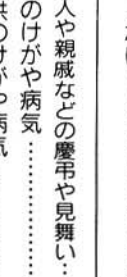 人や親戚などの慶弔や見舞い…
のけがや病気…………………
供のけがや病気…